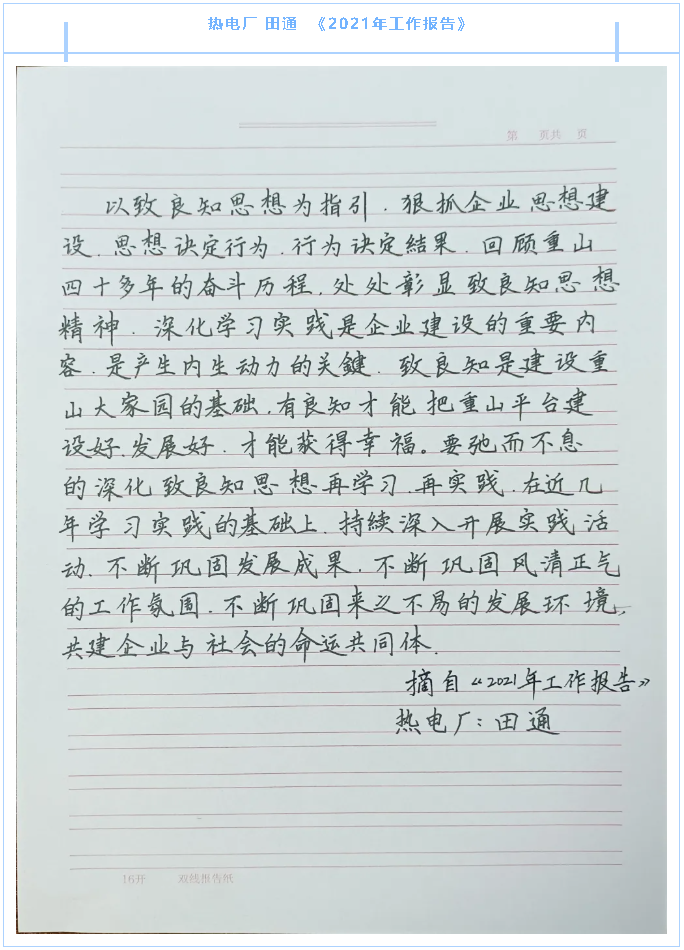 热电厂 田通 《2021年工作报告》
第 页共 页
以致良知思想为指引.狠抓企业思想建
设.思想决定行为.行为决定结果.回顾重山
四十多年的奋斗历程.处处彰显致良知思想
精神.深化学习实践是企业建设的重要内
容.是产生内生动力的关键.致良知是建设重
山大家园的基础.有良知才能把重山平台建
设好.发展好.才能获得幸福。要弛而不息
的深化致良知思想再学习.再实践.在近几
年学习实践的基础上.持续深入开展实践活
动.不断巩固发展成果.不断巩固风清正气
的工作氛围.不断巩固来之不易的发展环境,
共建企业与社会的命运共同体.
摘自《2021年工作报告》
热电厂:田通
16开 双线报告纸